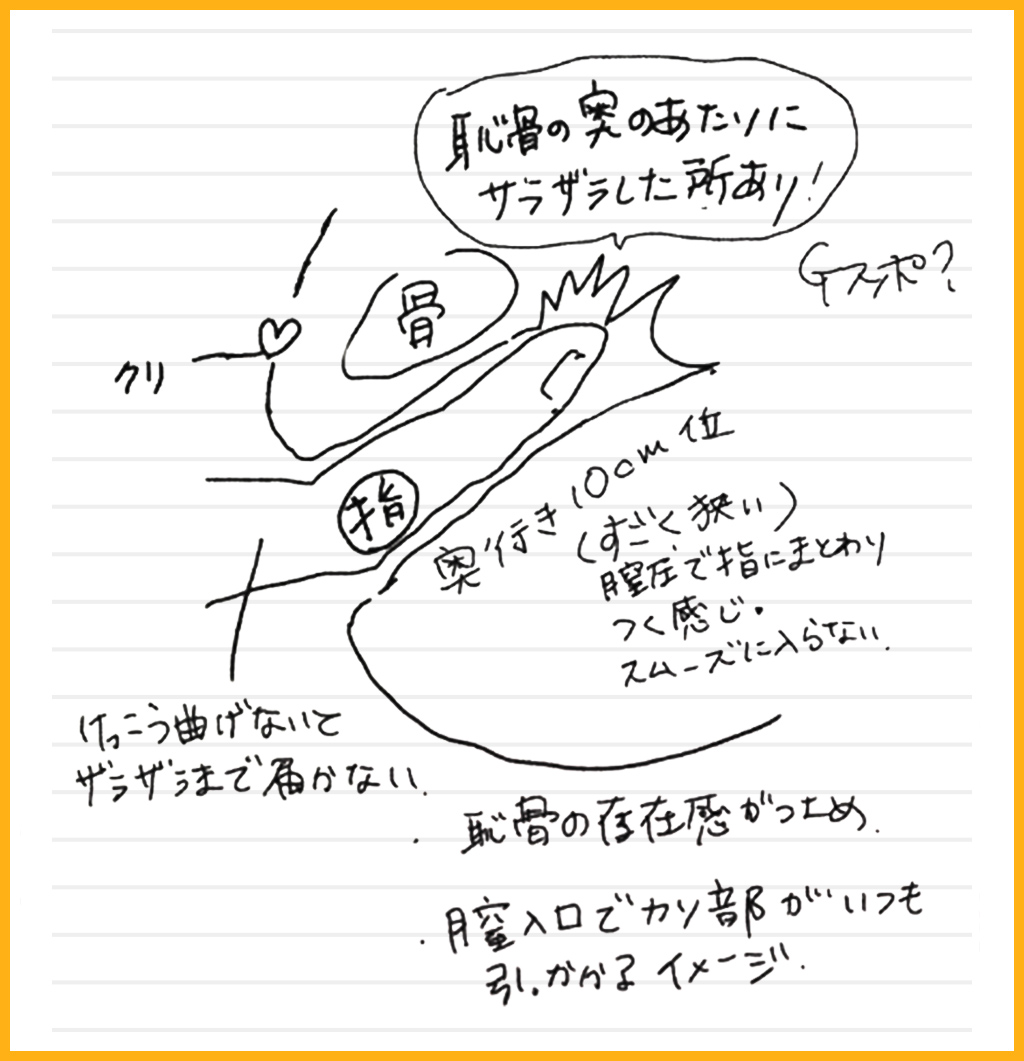 恥骨の奥のあたりに
ザラザラした所あり!
Gスッポ?
骨
クリ
指
奥行き10cm位
(すごく狭い)
膣圧で指にまとわり
つく感じ.
スムーズに入らない.
けっこう曲げないと
ザラザラまで届かない.
・恥骨の存在感がつよめ.
・膣入口でカリ部がいつも
引っかかるイメージ.